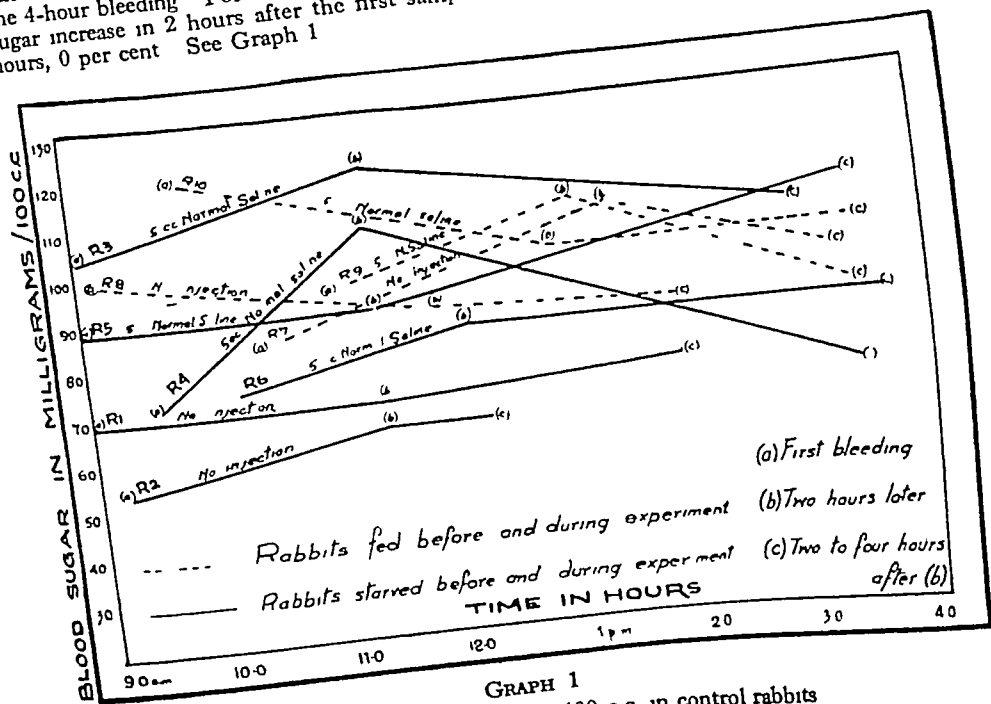 the 4-hour bleeding
sugar increase in 2 hours after the first
hours, 0 per cent See Graph 1
BLOOD SUGAR IN MILLIGRAMS/100CC
130
120
110
100
90
80
70
60
50
40
30
(a) R10
(a) R3 5 cc Normal Saline (b) (c)
5 Normal saline (b) (c)
(a) R8 N njection (b) (c)
(a) R9 5 N Saline (b) (c)
(a) R5 5 Normal S line (b) (c)
(a) R4 5cc No mal saline (b) ( )
(a) R7 No injection (b) (c)
R6 5 c Norm l Saline (b) (c)
(a) R1 No njection (b (c)
(a) R2 No injection (b) (c)
(a) First bleeding
(b) Two hours later
(c) Two to four hours
after (b)
Rabbits fed before and during experiment
Rabbits starved before and during exper ment
TIME IN HOURS
9 0 am 10-0 11-0 12.0 1 pm 2 0 3 0 4 0
GRAPH 1
in control rabbits